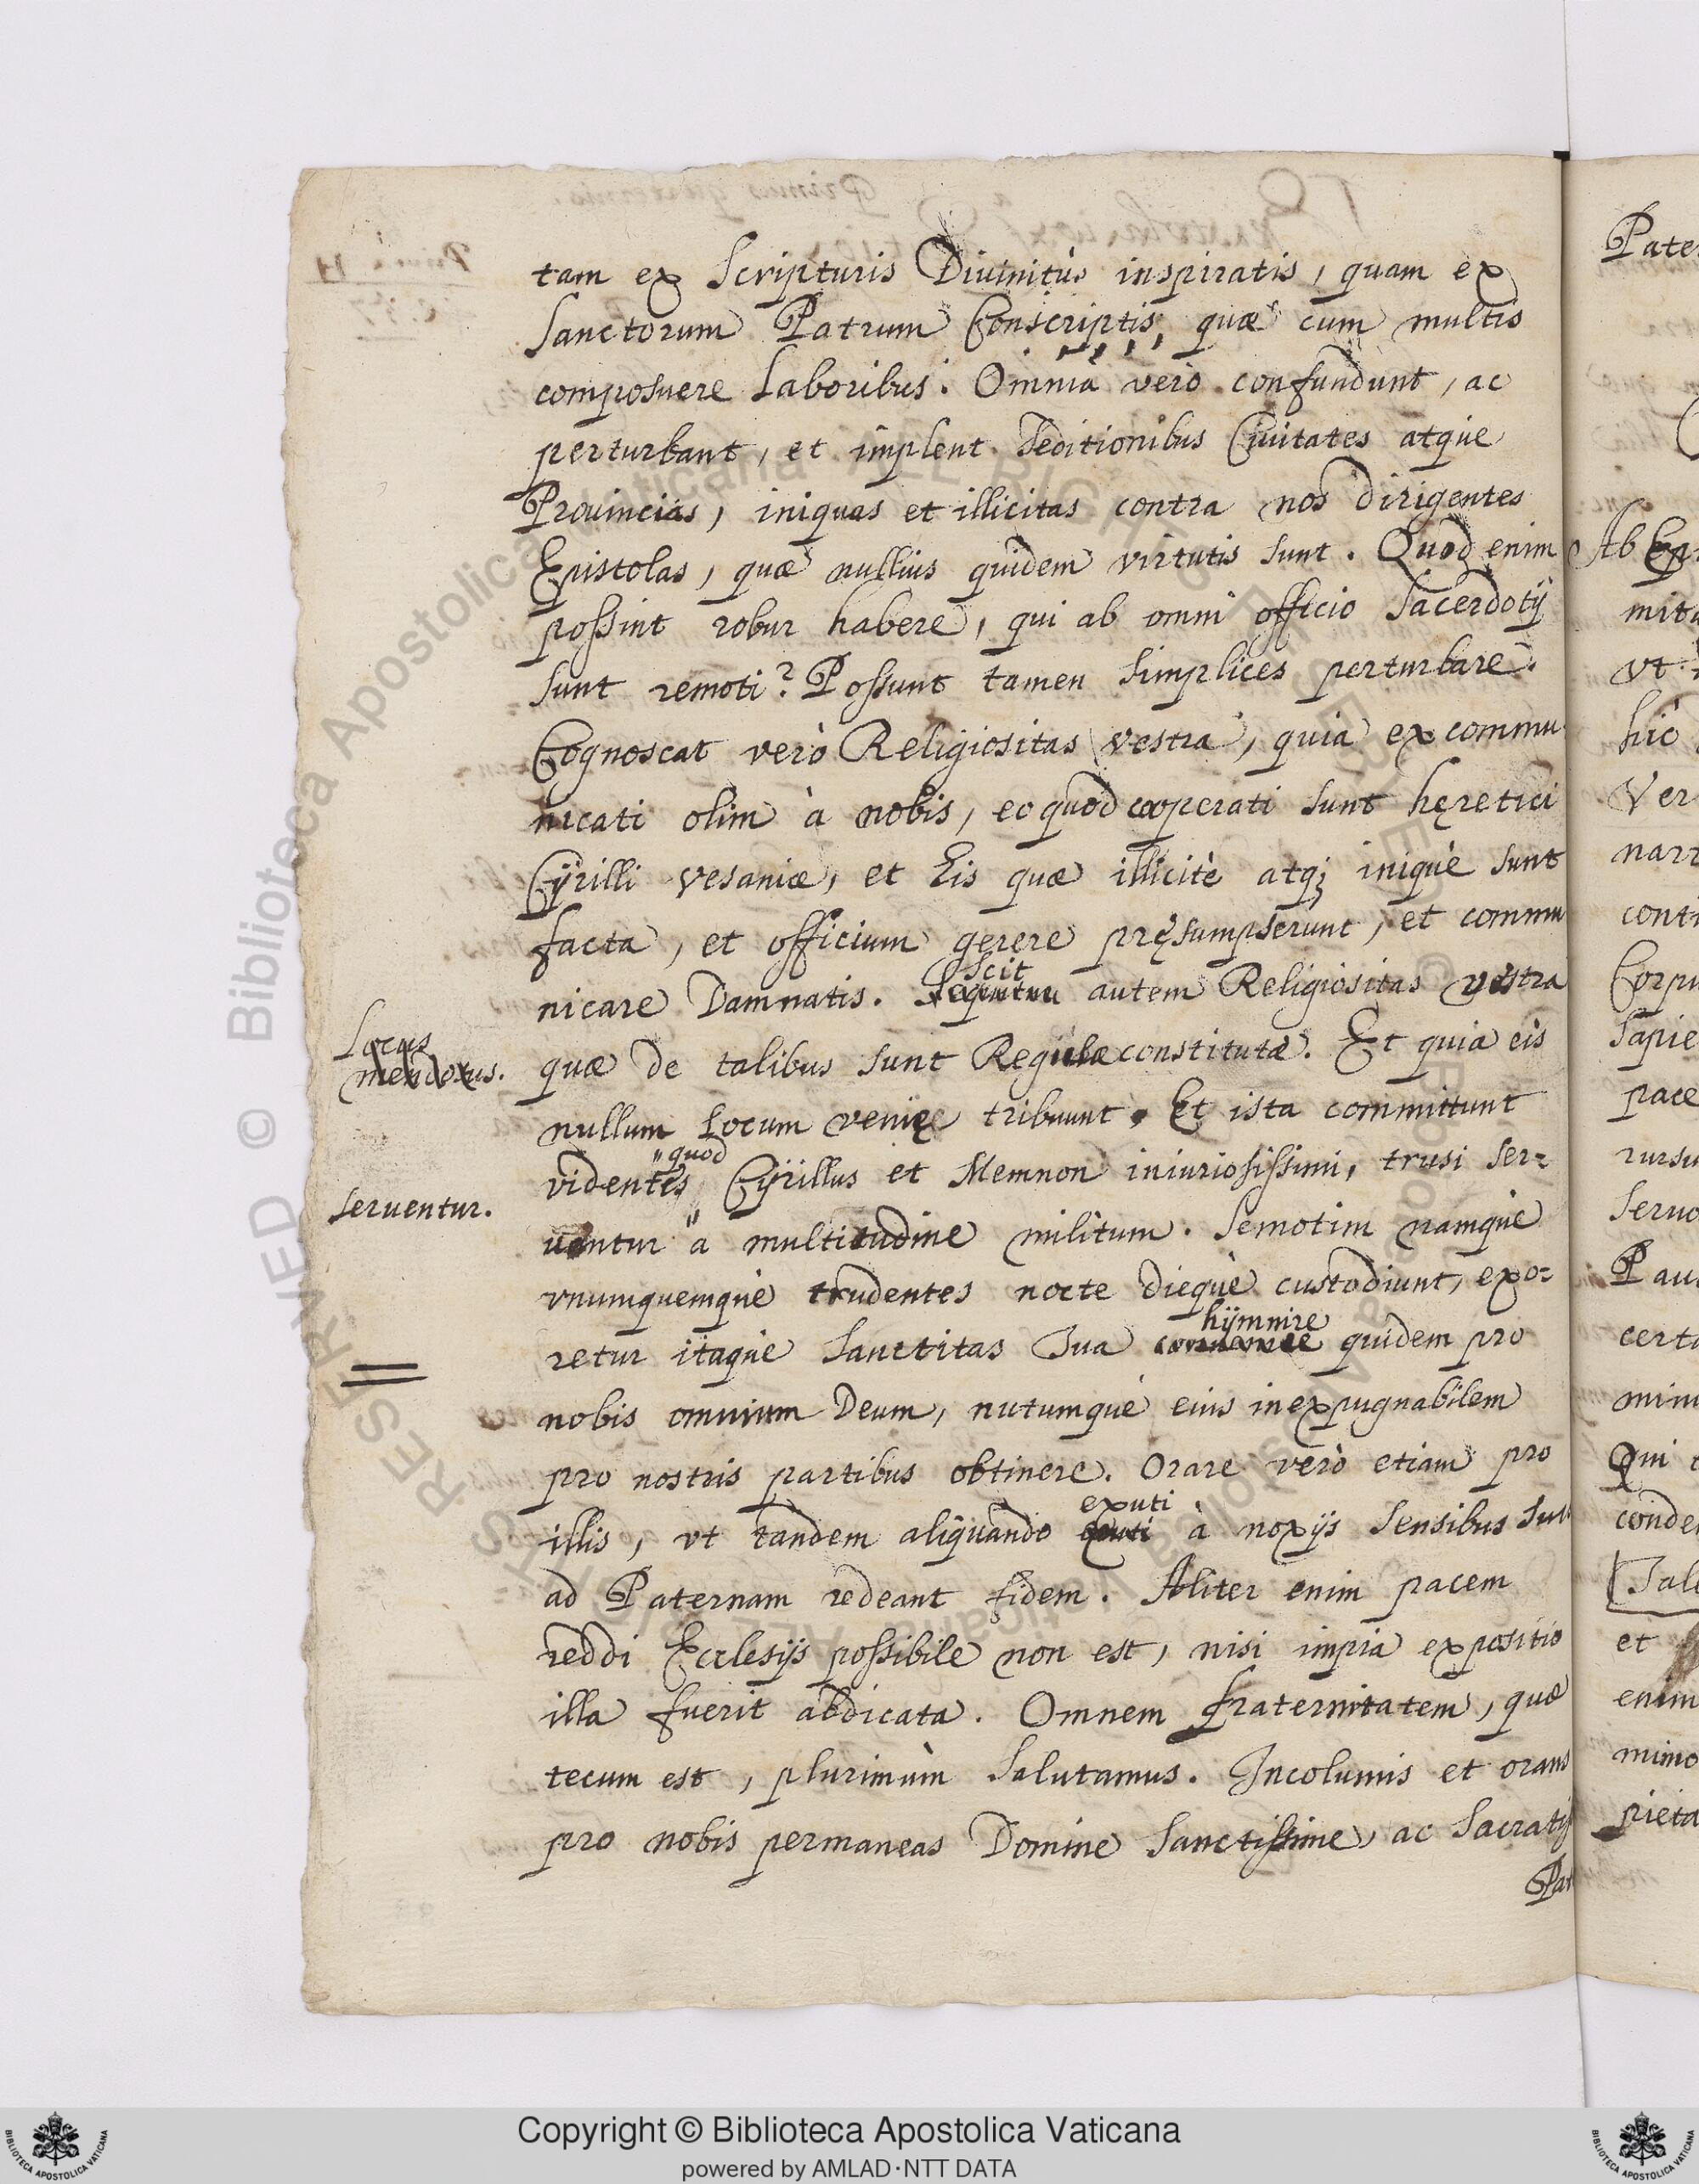 tam ex Scripturis Diuinitùs inspiratis, quam ex
Sanctorum Patrum Conscriptis, quæ cum multis
composuere Laboribus. Omnia verò confundunt, ac
perturbant, et implent Seditionibus Ciuitates atque
Prouincias, iniquas et illicitas contra nos dirigentes
Epistolas, quæ nullius quidem virtutis sunt. Quod enim
possint robur habere, qui ab omni officio Sacerdotij
sunt remoti? Possunt tamen Simplices perturbare.
Cognoscat verò Religiositas vestra, quia excommu
nicati olim à nobis, eo quod cooperati sunt hęretici
Cÿrilli vesaniæ, et Eis quæ illicitè atq; iniquè sunt
facta, et officium gerere pręsumpserunt, et commu
scit
nicare Damnatis. autem Religiositas vestra
Locus
mendosus.
quæ de talibus sunt Regulæ constitutæ. Et quia eis
nullum Locum venię tribuunt. Et ista committunt
quod
videntes Cÿrillus et Memnon iniuriosissimi, trusi ser-
seruentur.
uentur à multitudine militum. Semotim namque
vnumquemque trudentes nocte dieque custodiunt, exo-
hÿmnire
retur itaque Sanctitas Tua quidem pro
nobis omnium Deum, nutumque eius inexpugnabilem
pro nostris partibus obtinere. Orare verò etiam pro
exuti
illis, vt tandem aliquando à noxijs Sensibus suis
ad Paternam redeant fidem. Aliter enim pacem
reddi Ecclesijs possibile non est, nisi impia expositio
illa fuerit abdicata. Omnem fraternitatem, quæ
tecum est, plurimùm Salutamus. Incolumis et orans
pro nobis permaneas Domine Sanctissime, ac Sacratiss
Pat
Pate
Ab Ep
mitu
vt
hic
Ver
narr
conti
Corpu
Sapie
pace
rursu
Seruo
Pau
certa
minu
Qui
conde
Tali
et
enim
mino
pieta
© Biblioteca Apostolica Vaticana
ALL RIGHTS RESERVED
Copyright © Biblioteca Apostolica Vaticana
powered by AMLAD·NTT DATA
BIBLIOTECA APOSTOLICA VATICANA
BIBLIOTECA APOSTOLICA VATICANA